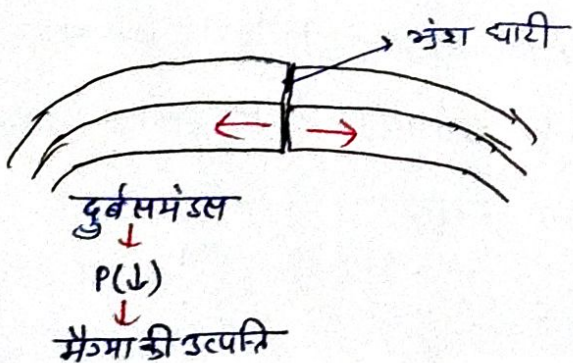 भ्रंश घाटी
दुर्बलमंडल
↓
P(↓)
↓
मैग्मा की उत्पत्ति